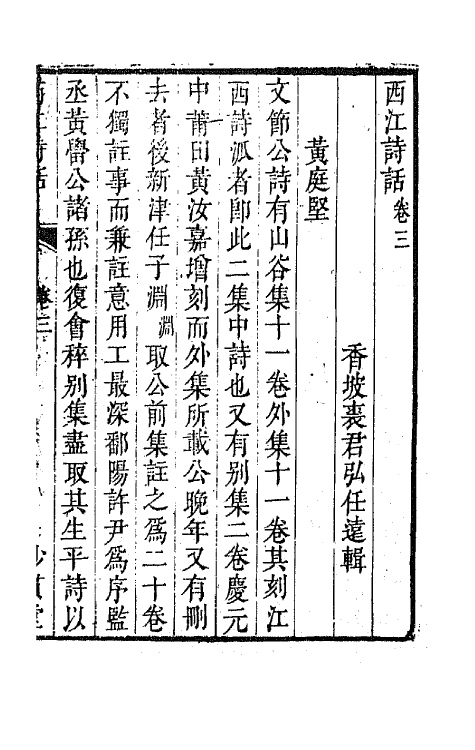 西江詩話卷三
香坡裘君弘任遠輯
黃庭堅
文節公詩有山谷集十一卷外集十一卷其刻江
西詩派者即此二集中詩也又有别集二卷慶元
中莆田黃汝嘉增刻而外集所載公晚年又有刪
去者後新津任子淵淵取公前集註之爲二十卷
不獨註事而兼註意用工最深鄱陽許尹爲序監
丞黃㽦公諸孫也復會稡别集盡取其生平詩以
江詩話 卷三